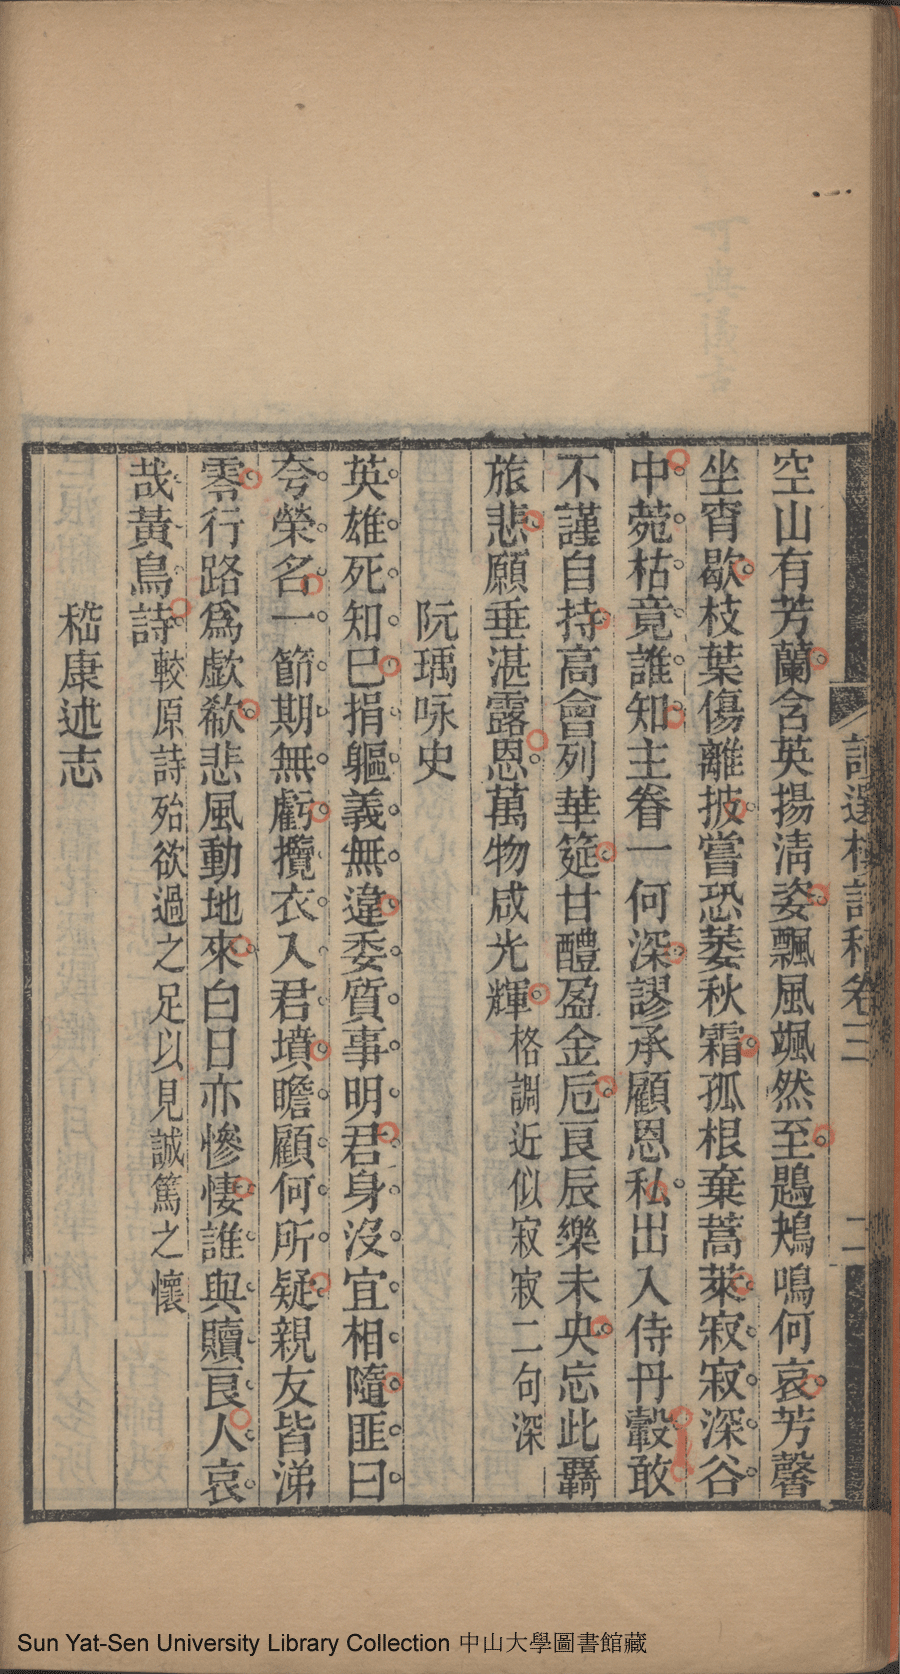 詩選樓詩稿卷三
二
空山有芳蘭含英揚淸姿飄風颯然至鶗鴂鳴何哀芳馨
坐宵歇枝葉傷離披嘗恐萎秋霜孤根棄蒿萊寂寂深谷
中菀枯竟誰知主眷一何深謬承顧恩私出入侍丹轂敢
不謹自持高會列華筵甘醴盈金卮良辰樂未央忘此羇
旅悲願垂湛露恩萬物咸光輝格調近似寂寂二句深
阮瑀咏史
英雄死知已捐軀義無違委質事明君身沒宜相隨匪曰
夸榮名一節期無虧攬衣入君墳瞻顧何所疑親友皆涕
零行路爲歔欷悲風動地來白日亦慘悽誰與贖良人哀
哉黃鳥詩較原詩殆欲過之足以見誠篤之懷
嵇康述志
Sun Yat-Sen University Library Collection 中山大學圖書館藏